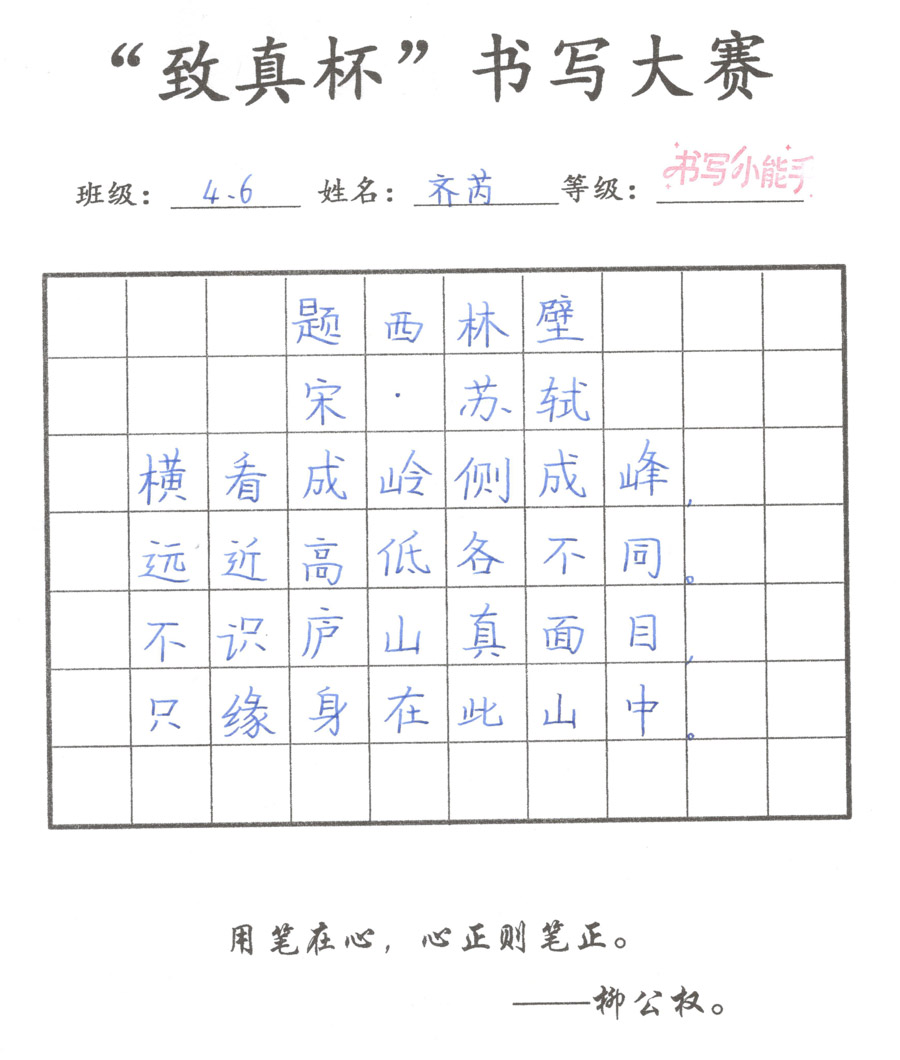 “致真杯”书写大赛
班级：4.6 姓名：齐芮 等级：书写小能手
题西林壁
宋·苏轼
横看成岭侧成峰，
远近高低各不同。
不识庐山真面目，
只缘身在此山中。
用笔在心，心正则笔正。
——柳公权。